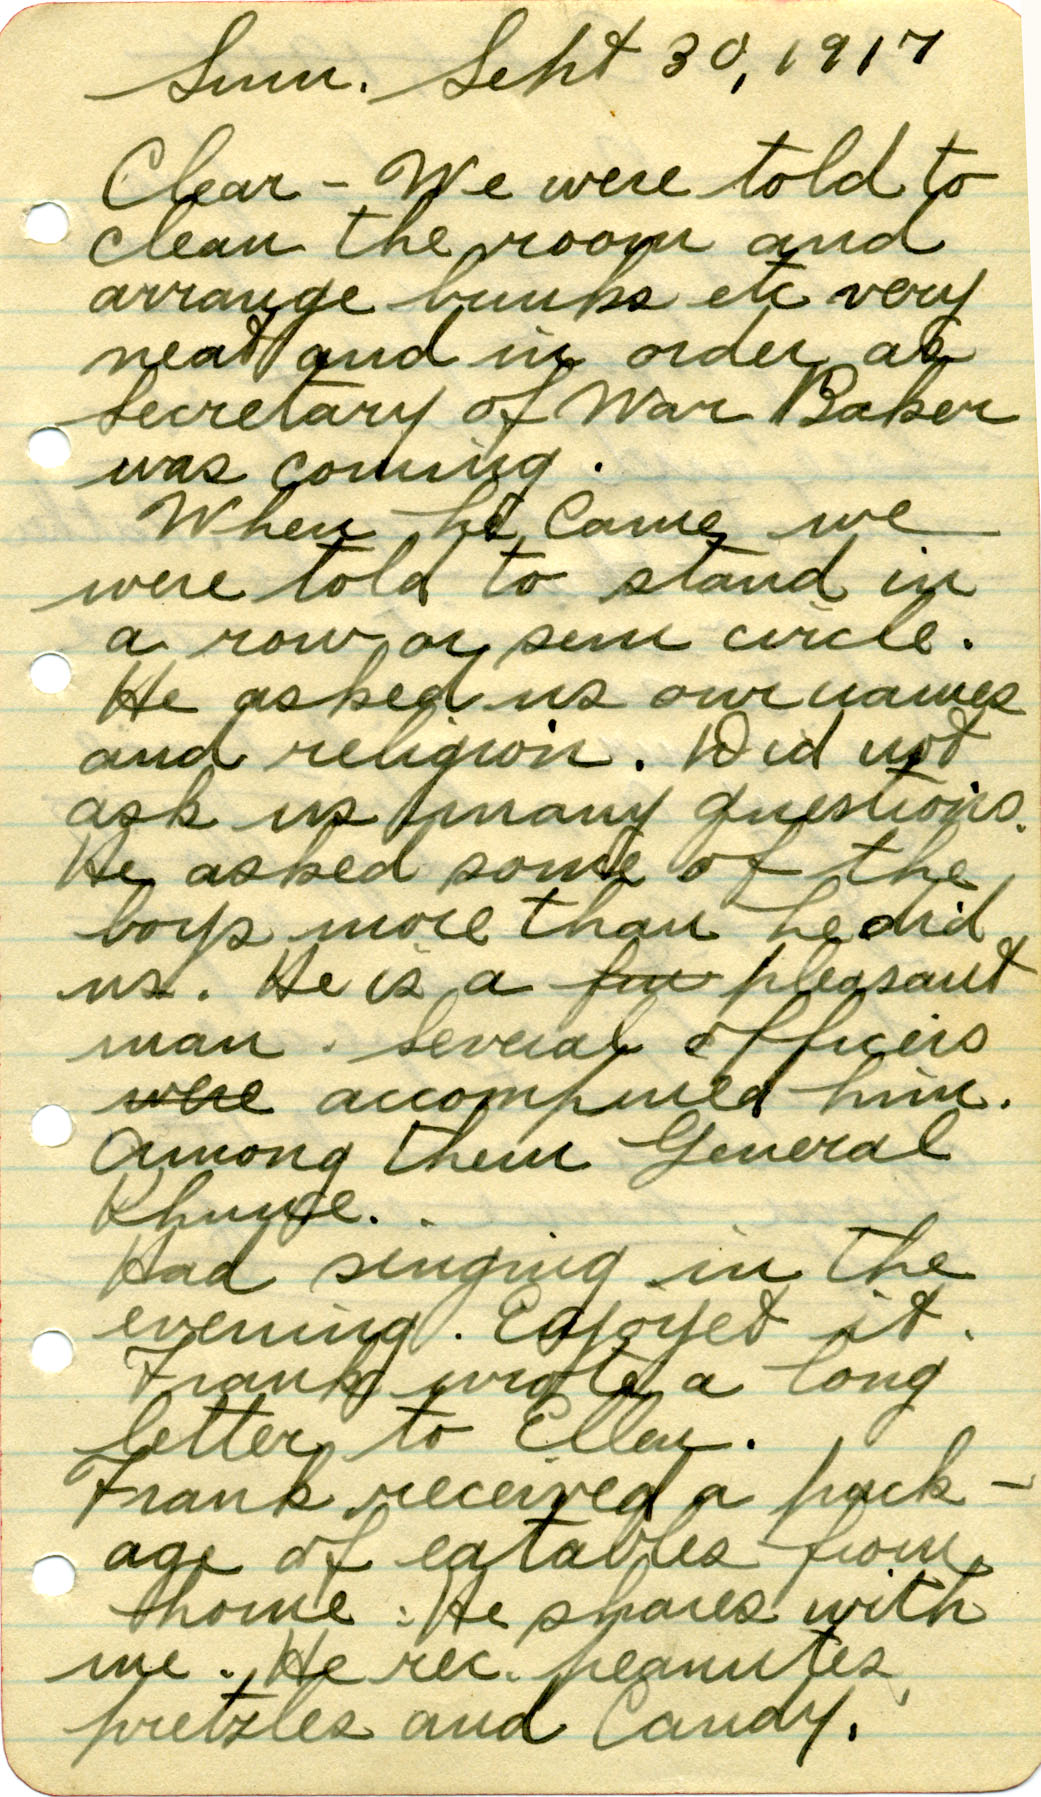 Sun. Sept 30, 1917
Clear - We were told to
clean the room and
arrange bunks etc very
neat and in order as
Secretary of War Baker
was coming.
When he came we
were told to stand in
a row or semi circle.
He asked us our names
and religion. Did not
ask us many questions.
He asked some of the
boys more than he did
us. He is a pleasant
man. Several officers
were accompined him.
Among them General
Had singing in the
evening. Enjoyet it.
Frank wrote a long
letter to Ellen.
Frank received a pack-
age of eatables from
home. He shares with
me. He rec. peanutes,
pretzles and Candy.